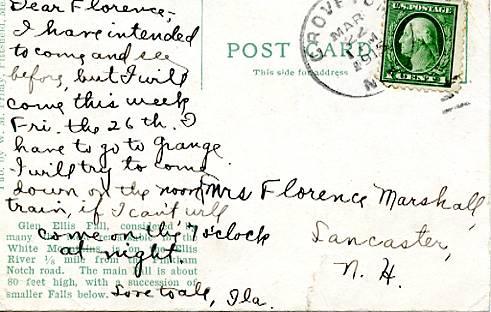 Dear Florence;-
I have intended
to come and see
before, but I will
come this week
Fri. the 26th. I
have to go to Grange
I will try to come
down on the noon
train, if I can't will
come on the 7 o'clock
at night
Love to all, Ila.
POST CARD
This side for address
GROVETON
MAR
N
Mrs Florence Marshall,
Lancaster,
N. H.
Glen Ellis Fall,
many the
White Mountains, is on the Ellis
River ⅛ mile from the Pinkham
Notch road. The main fall is about
80 feet high, with a succession of
smaller Falls below.